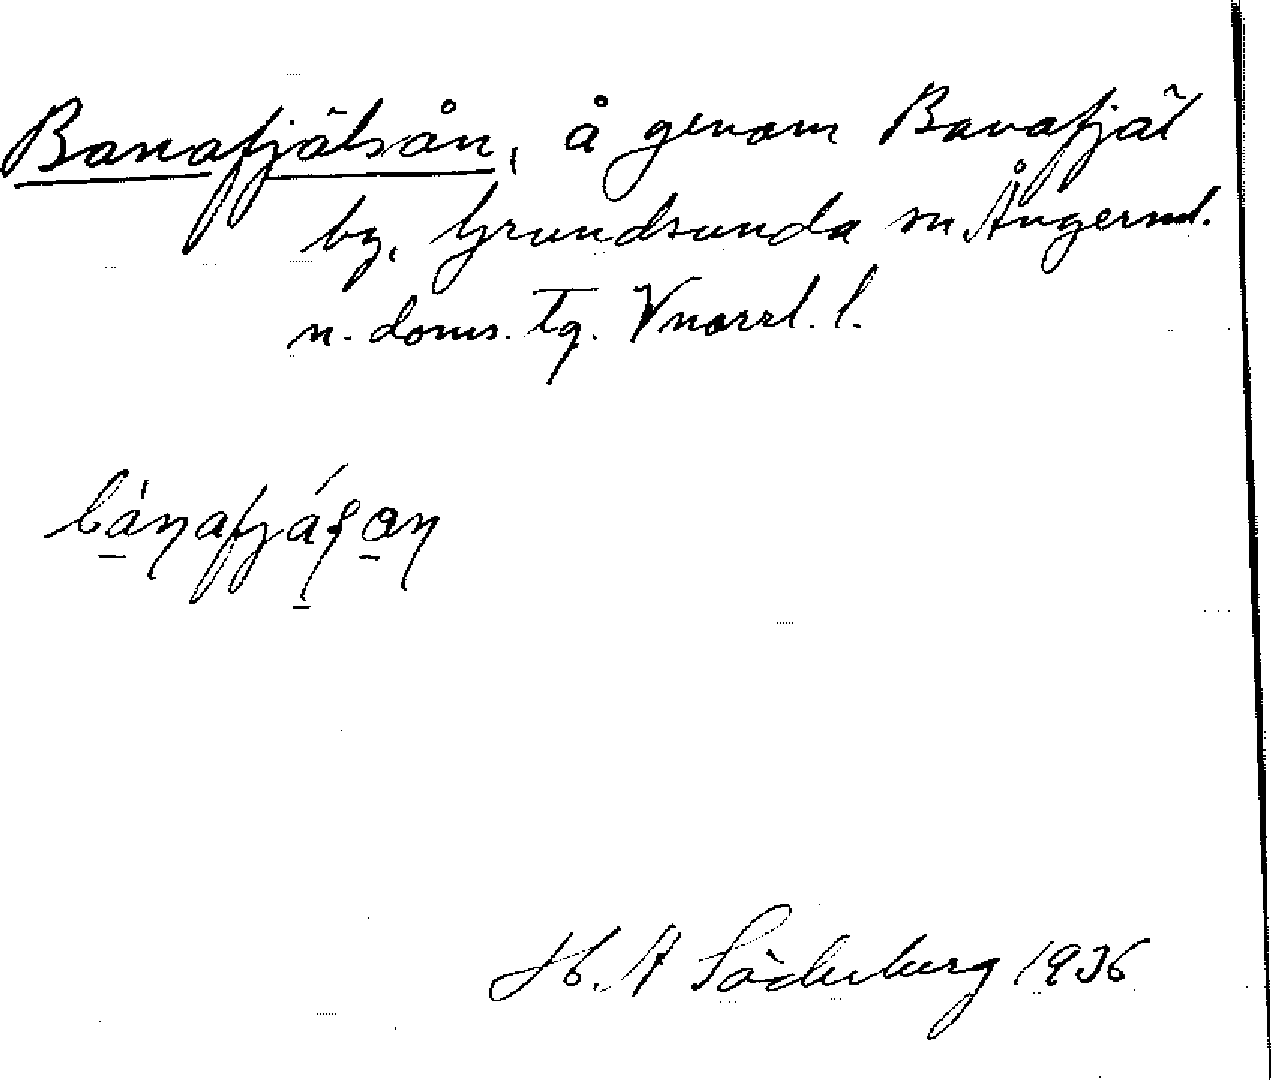 Banafjälsån, å genom Banafjäl
by, Grundsunda sn Ångerml.
n. doms. tg. Vnorrl. l.
H. A Söderberg 1936